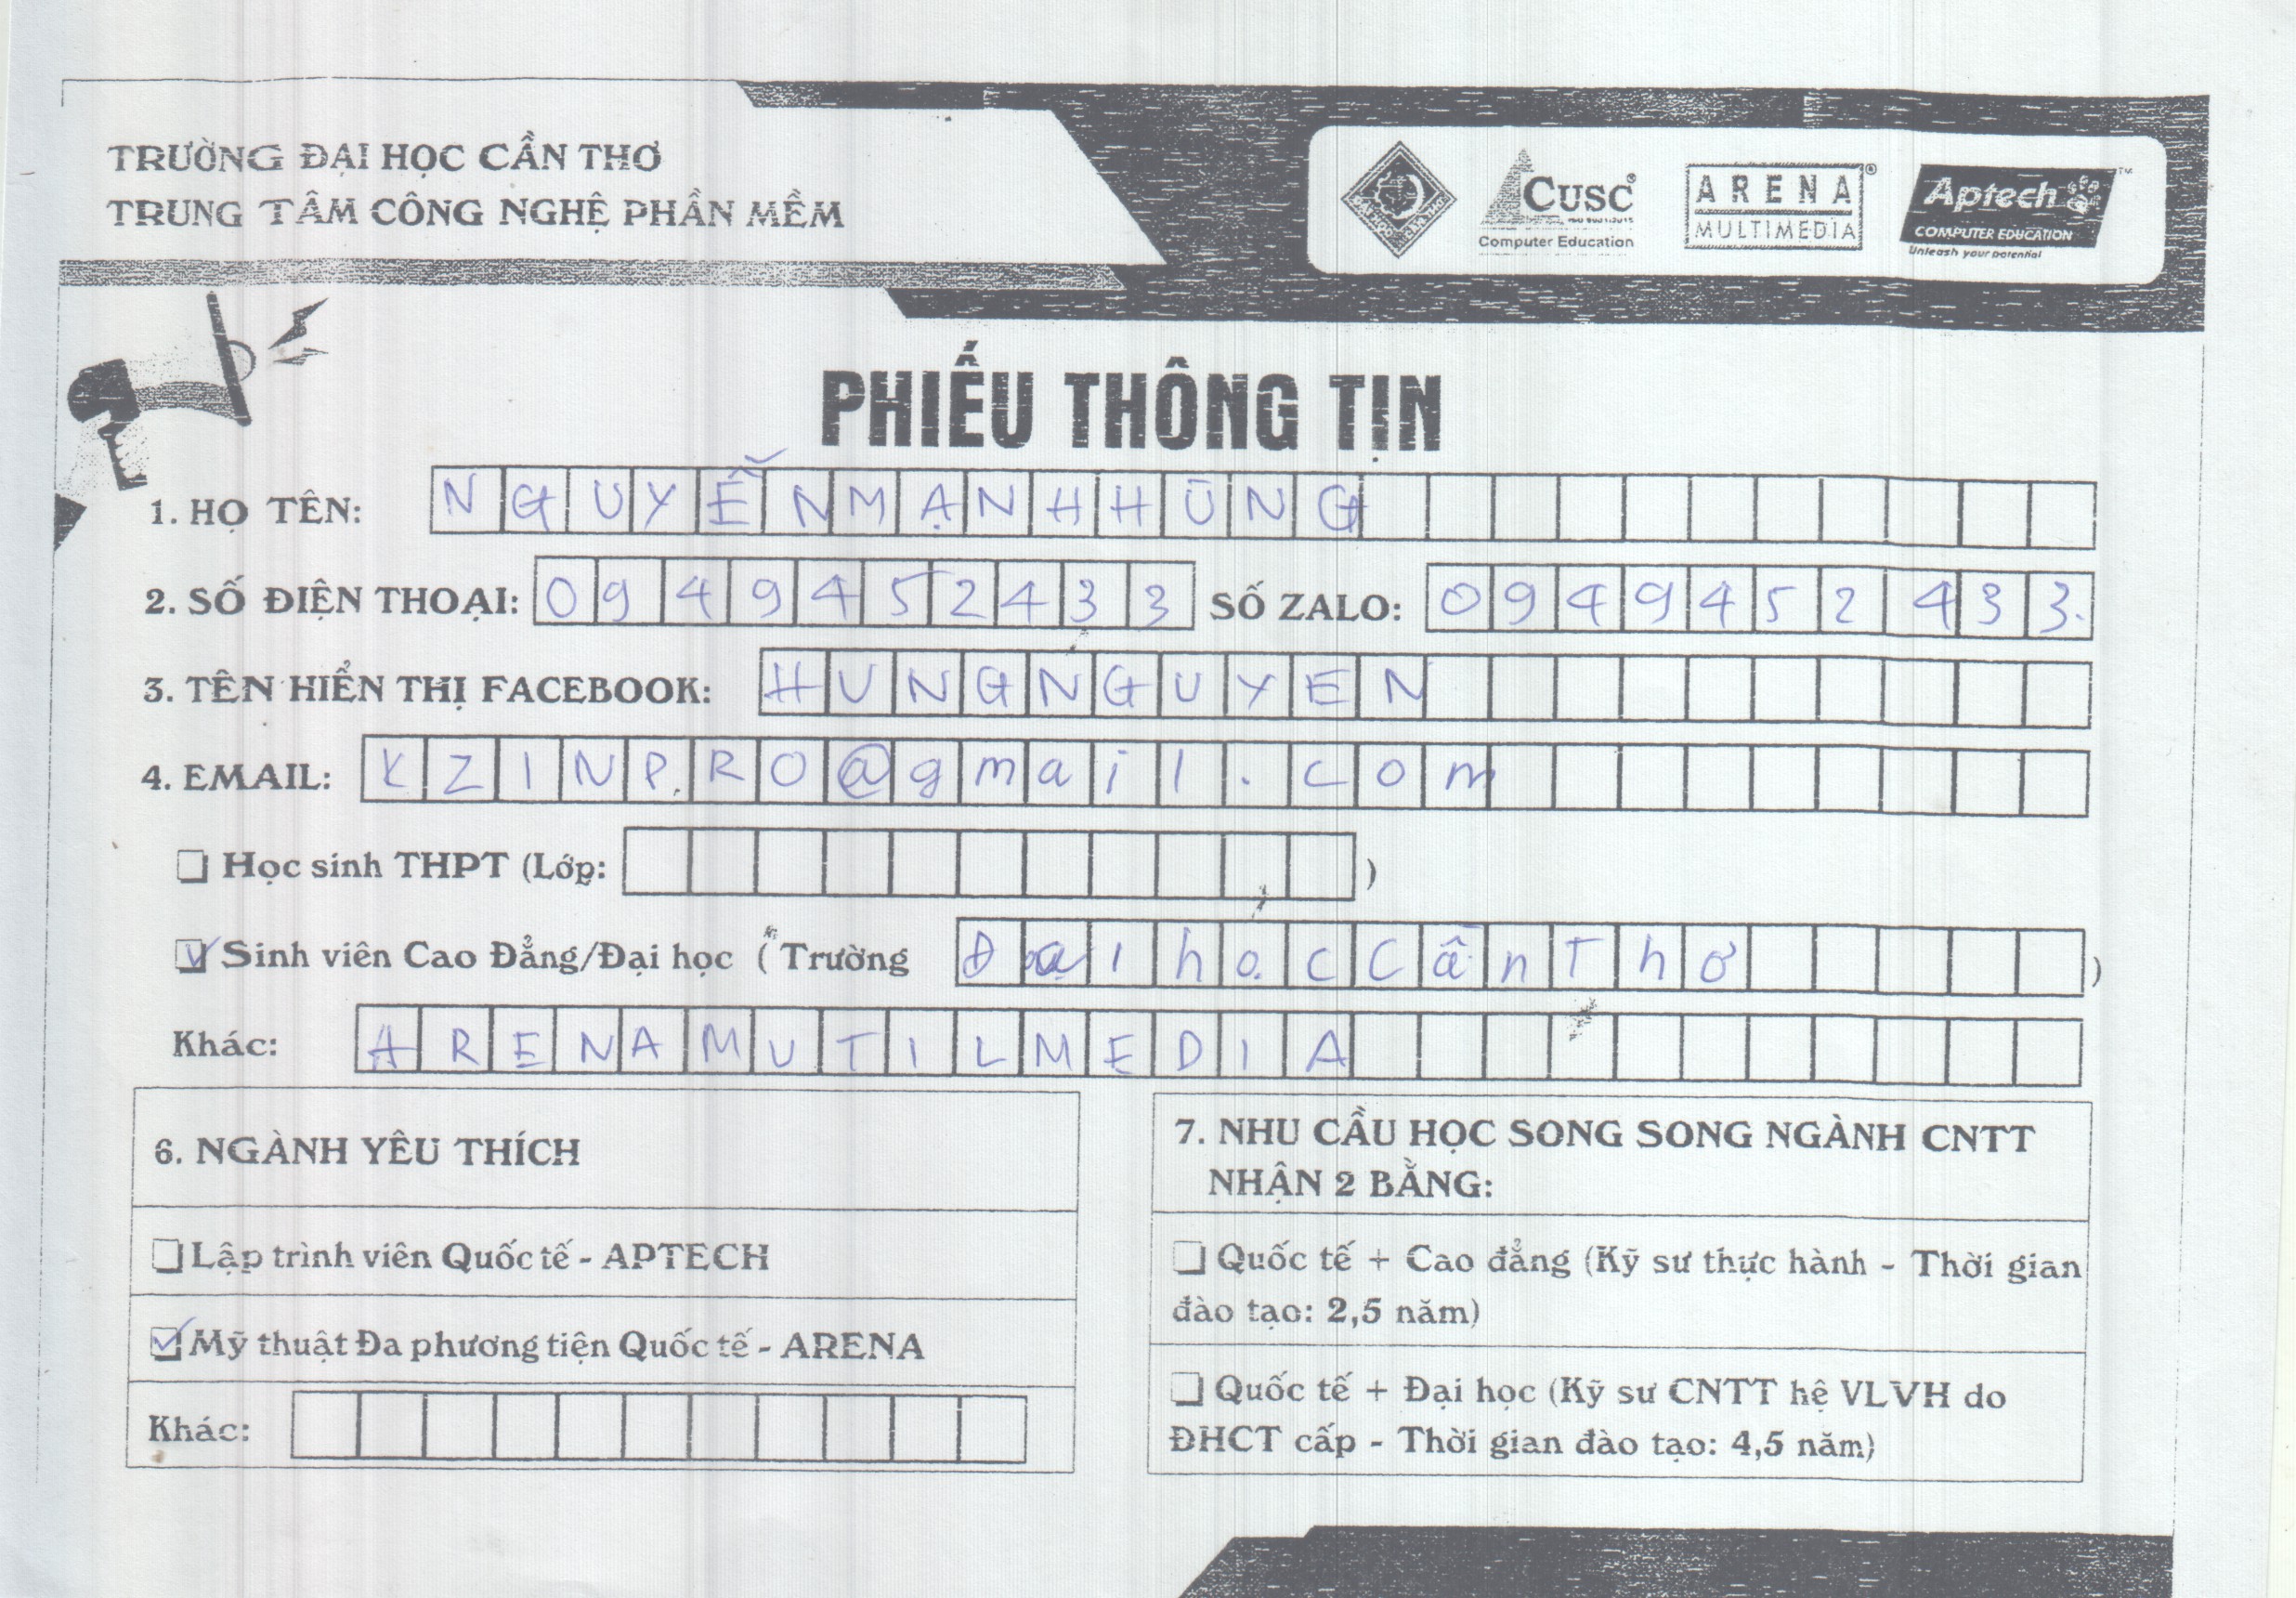 TRƯỜNG ĐẠI HỌC CẦN THƠ
TRUNG TÂM CÔNG NGHỆ PHẦN MỀM
CUSC®
Computer Education
ARENA®
MULTIMEDIA
Aptech™
COMPUTER EDUCATION
Unleash your potential
PHIẾU THÔNG TIN
1. HỌ TÊN: NGUYỄNMẠNHHÙNG
2. SỐ ĐIỆN THOẠI: 0949452433 SỐ ZALO: 0949452433.
3. TÊN HIỂN THỊ FACEBOOK: HUNGNGUYEN
4. EMAIL: KZINPRO@gmail.com
Học sinh THPT (Lớp: )
Sinh viên Cao Đẳng/Đại học (Trường ĐạihọcCầnThơ)
Khác: ARENAMUTILMEDIA
6. NGÀNH YÊU THÍCH
Lập trình viên Quốc tế - APTECH
Mỹ thuật Đa phương tiện Quốc tế - ARENA
Khác:
7. NHU CẦU HỌC SONG SONG NGÀNH CNTT
NHẬN 2 BẰNG:
Quốc tế + Cao đẳng (Kỹ sư thực hành - Thời gian
đào tạo: 2,5 năm)
Quốc tế + Đại học (Kỹ sư CNTT hệ VLVH do
ĐHCT cấp - Thời gian đào tạo: 4,5 năm)